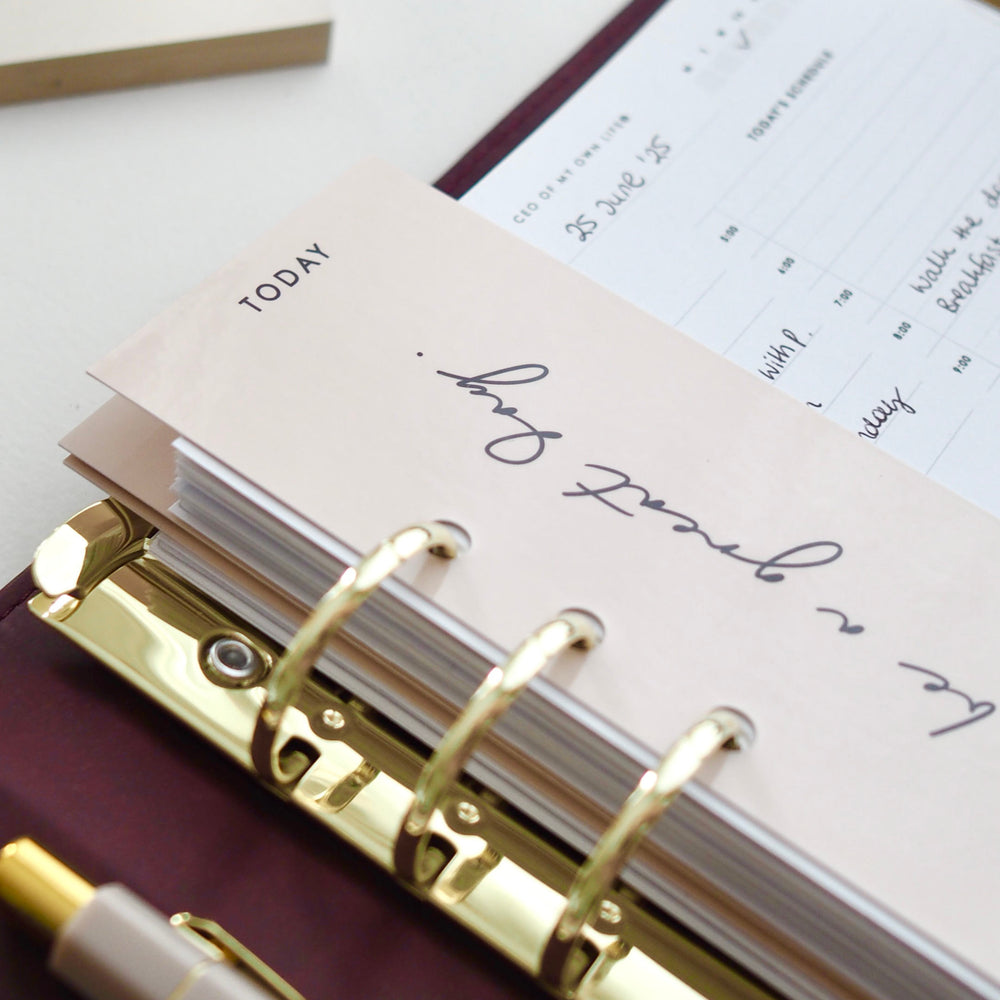 TODAY
be a great day.
CEO OF MY OWN LIFE®
25 June '25
TODAY'S SCHEDULE
5:00
6:00
7:00
8:00
9:00
Walk the
Breakfast
with P.